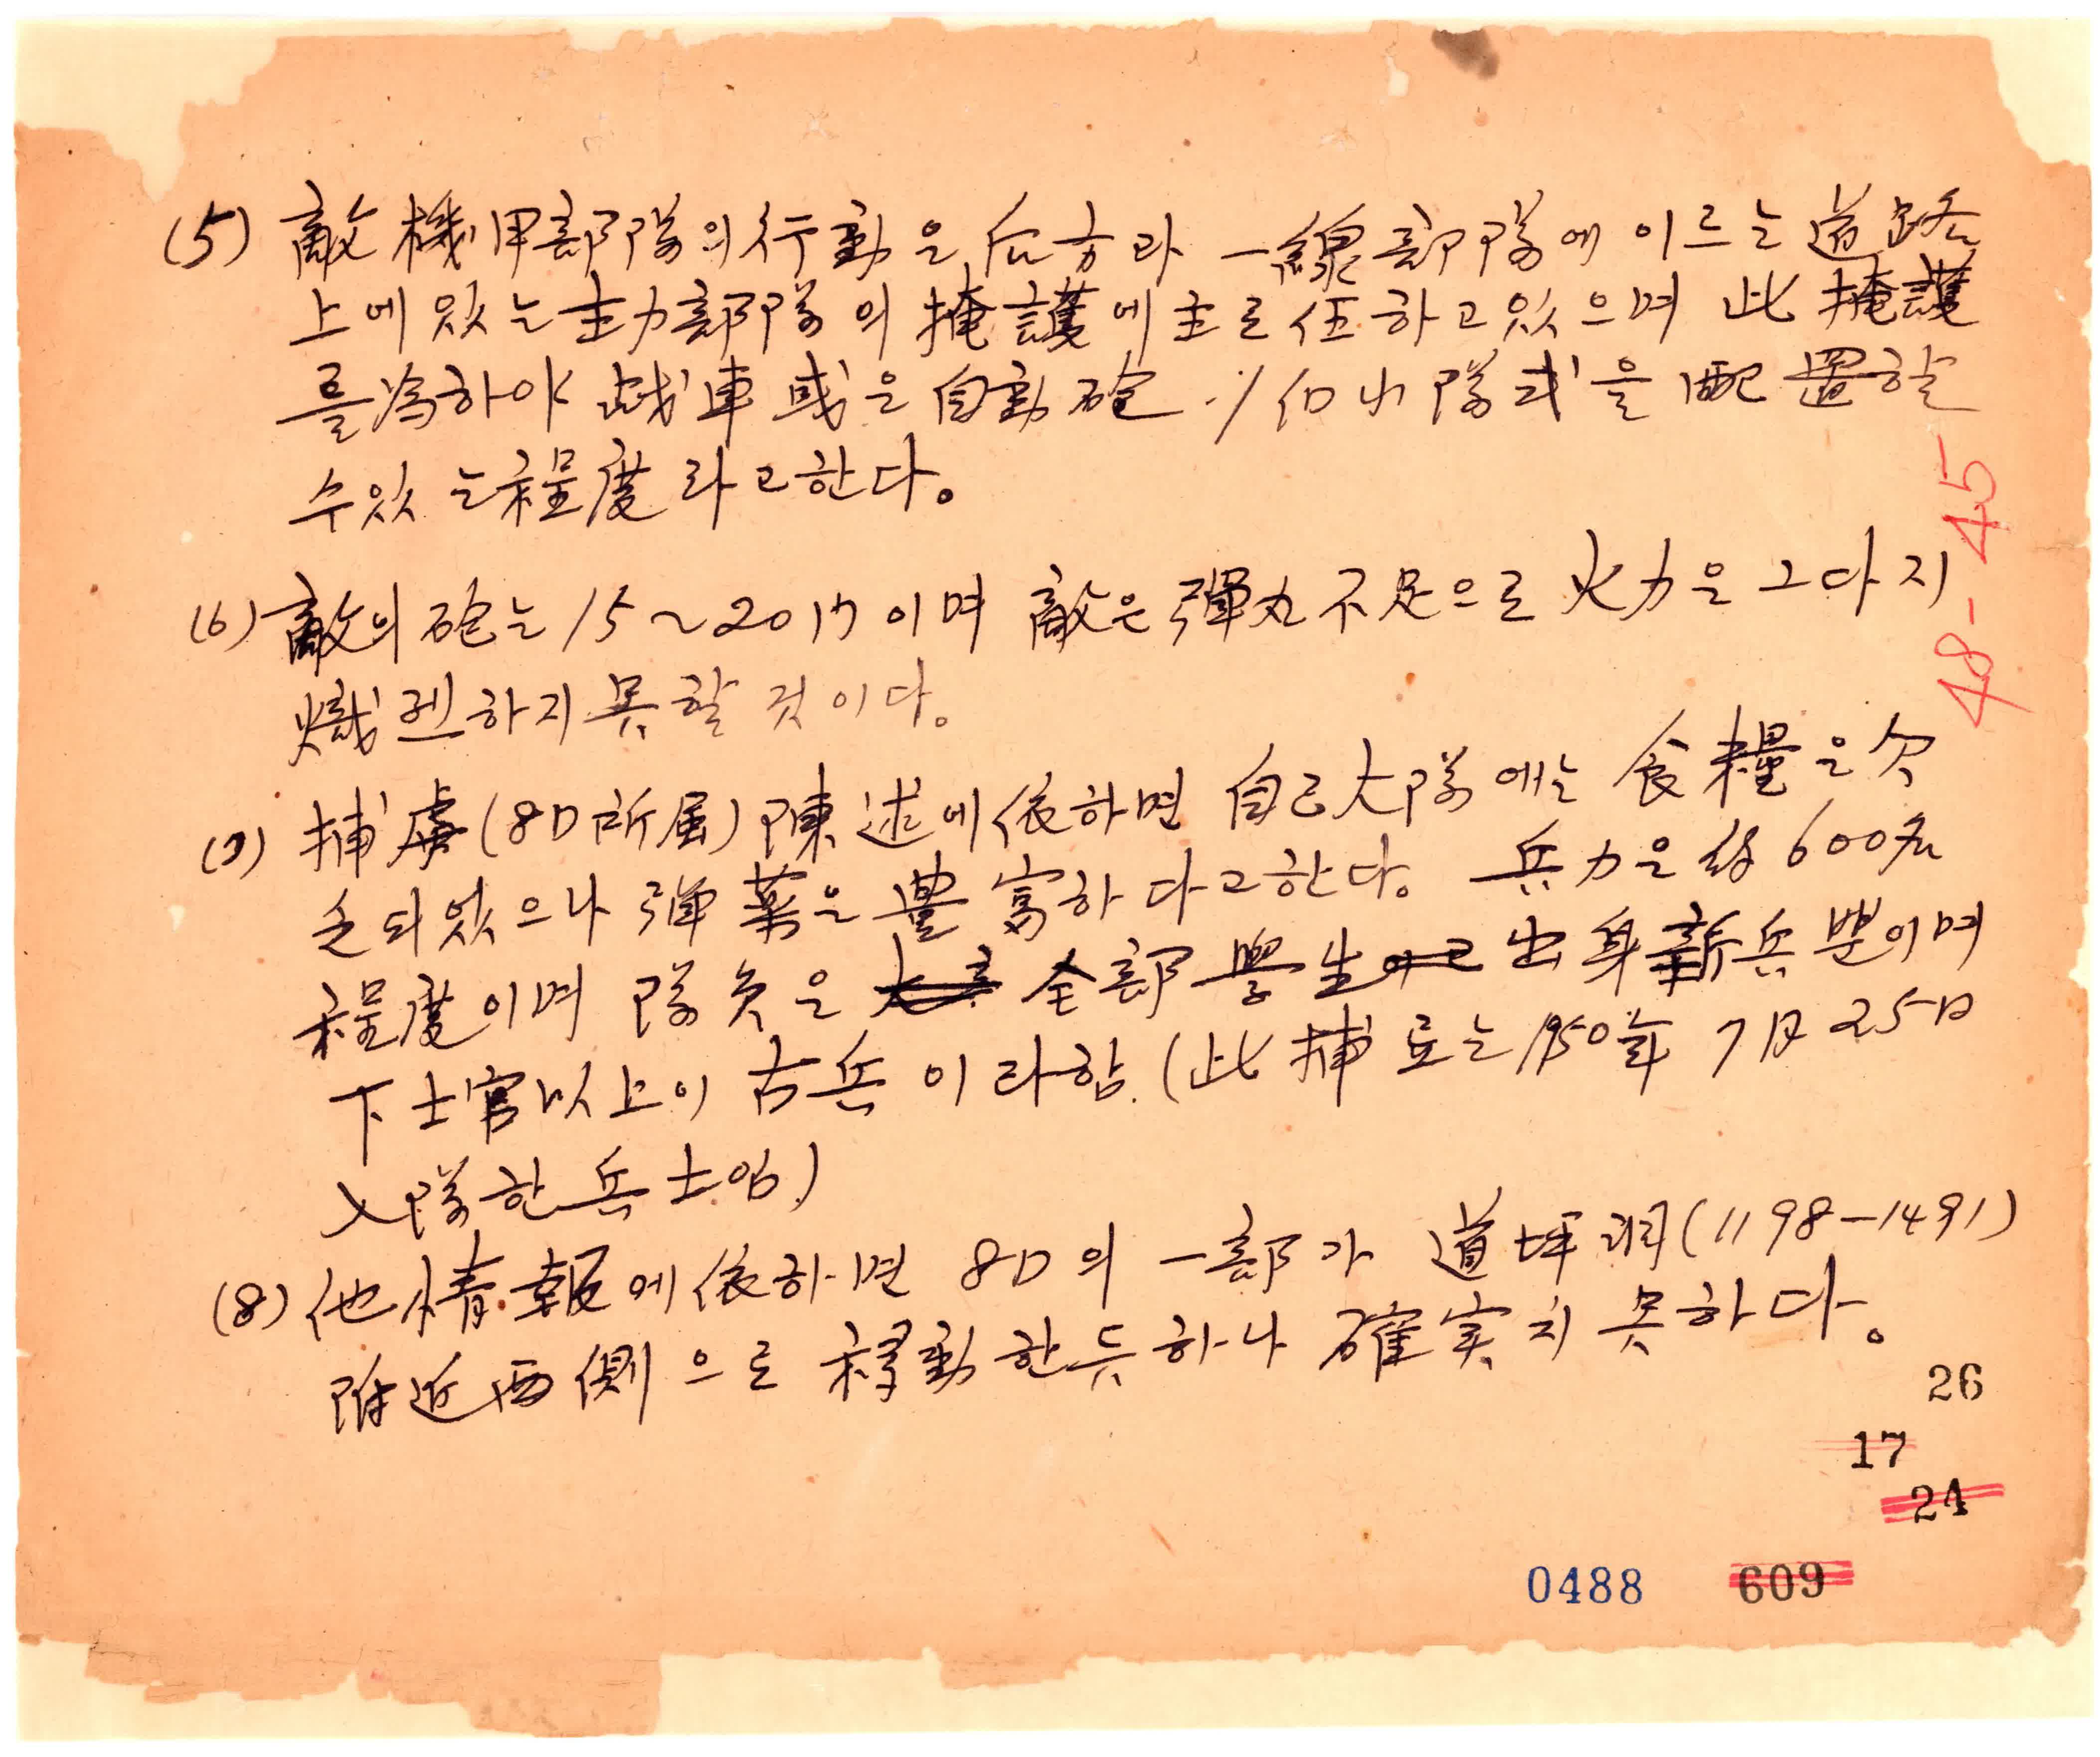 (5) 敵機甲部隊의 行動은 后方과 一線部隊에 이르는 道路
上에 있는 主力部隊의 掩護에 主로 任하고 있으며 此 掩護
를 為하야 戰車 或은 自動砲 隊式을 配置할
수 있는 程度라고 한다。
(6) 敵의 砲는 15~20门이며 敵은 彈丸不足으로 火力은 그다지
熾烈하지 못할 것이다。
(7) 捕虜(8D所屬) 陳述에 依하면 自己大隊에는 食糧은 欠
乏되였으나 彈藥은 豊富하다고 한다。 兵力은 約 600名
程度이며 隊員은 全部 學生 出身 新兵뿐이며
下士官以上이 古兵이라 함. (此 捕로는 1950年 7月 25日
入隊한 兵士임)
(8) 他情報에 依하면 8D의 一部가 道坪洞(1198-1491)
附近 西側으로 移動한 듯하나 確実치 못하다。
48-45
26
17
24
0488 609